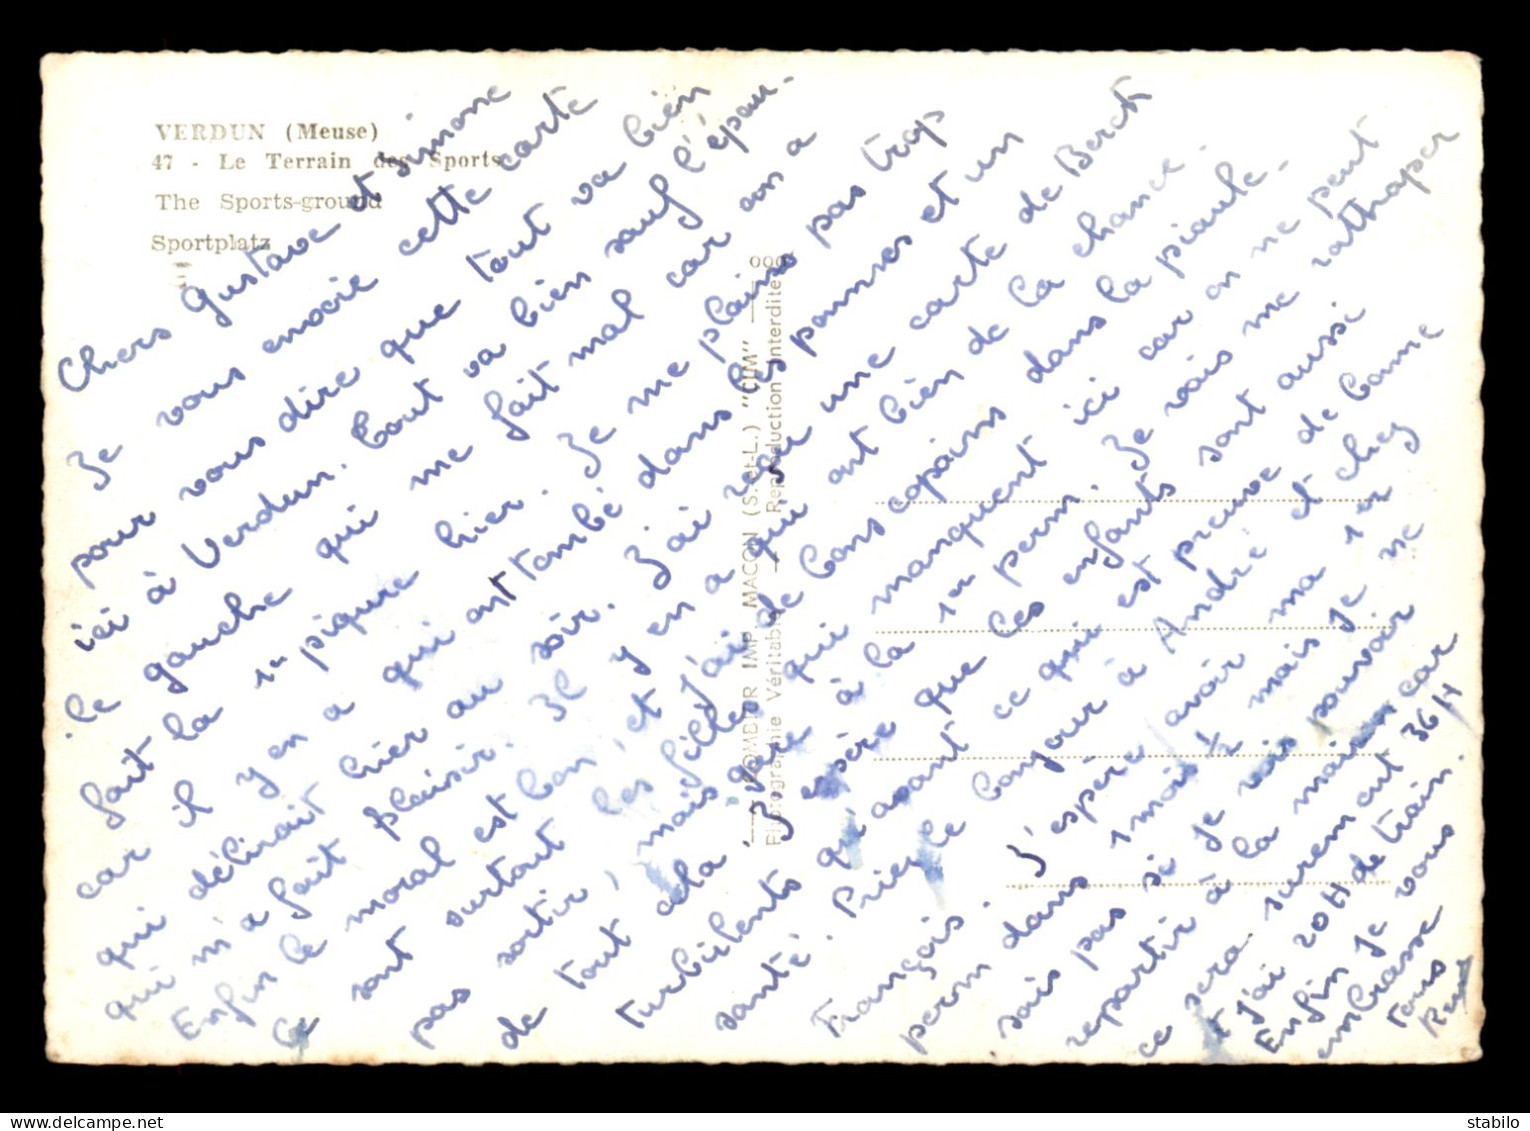 VERDUN (Meuse)
47 - Le Terrain des Sports
The Sports-ground
Sportplatz
COMBIER IMP. MACON (S.-et-L.) "CIM"
Photographie Véritable - Reproduction Interdite
Chers Gustave et Simone
Je vous envoie cette carte
pour vous dire que tout va bien
ici à Verdun. Tout va bien sauf l'épau-
le gauche qui me fait mal car on a
fait la 1re piqure hier. Je me plains pas trop
car il y en a qui ont tombé dans les pommes et un
qui délirait hier au soir. J'ai reçu une carte de Berck
qui m'a fait plaisir. Il y en a qui ont bien de la chance.
Enfin le moral est bon et j'ai de bons copains dans la piaule.
Ce sont surtout les filles qui manquent ici car on ne peut
pas sortir, mais gare à la 1re perm. Je vais me rattraper
de tout cela. J'espère que les enfants sont aussi
turbulents qu'avant ce qui est preuve de bonne
santé. Priez le bonjour à André et chez
François. J'espère avoir ma 1er
perm dans 1 mois 1/2 mais je ne
sais pas si je vais pouvoir
repartir à la maison car
ce sera surement 36 H
et j'ai 20 H de train.
Enfin je vous
embrasse
tous